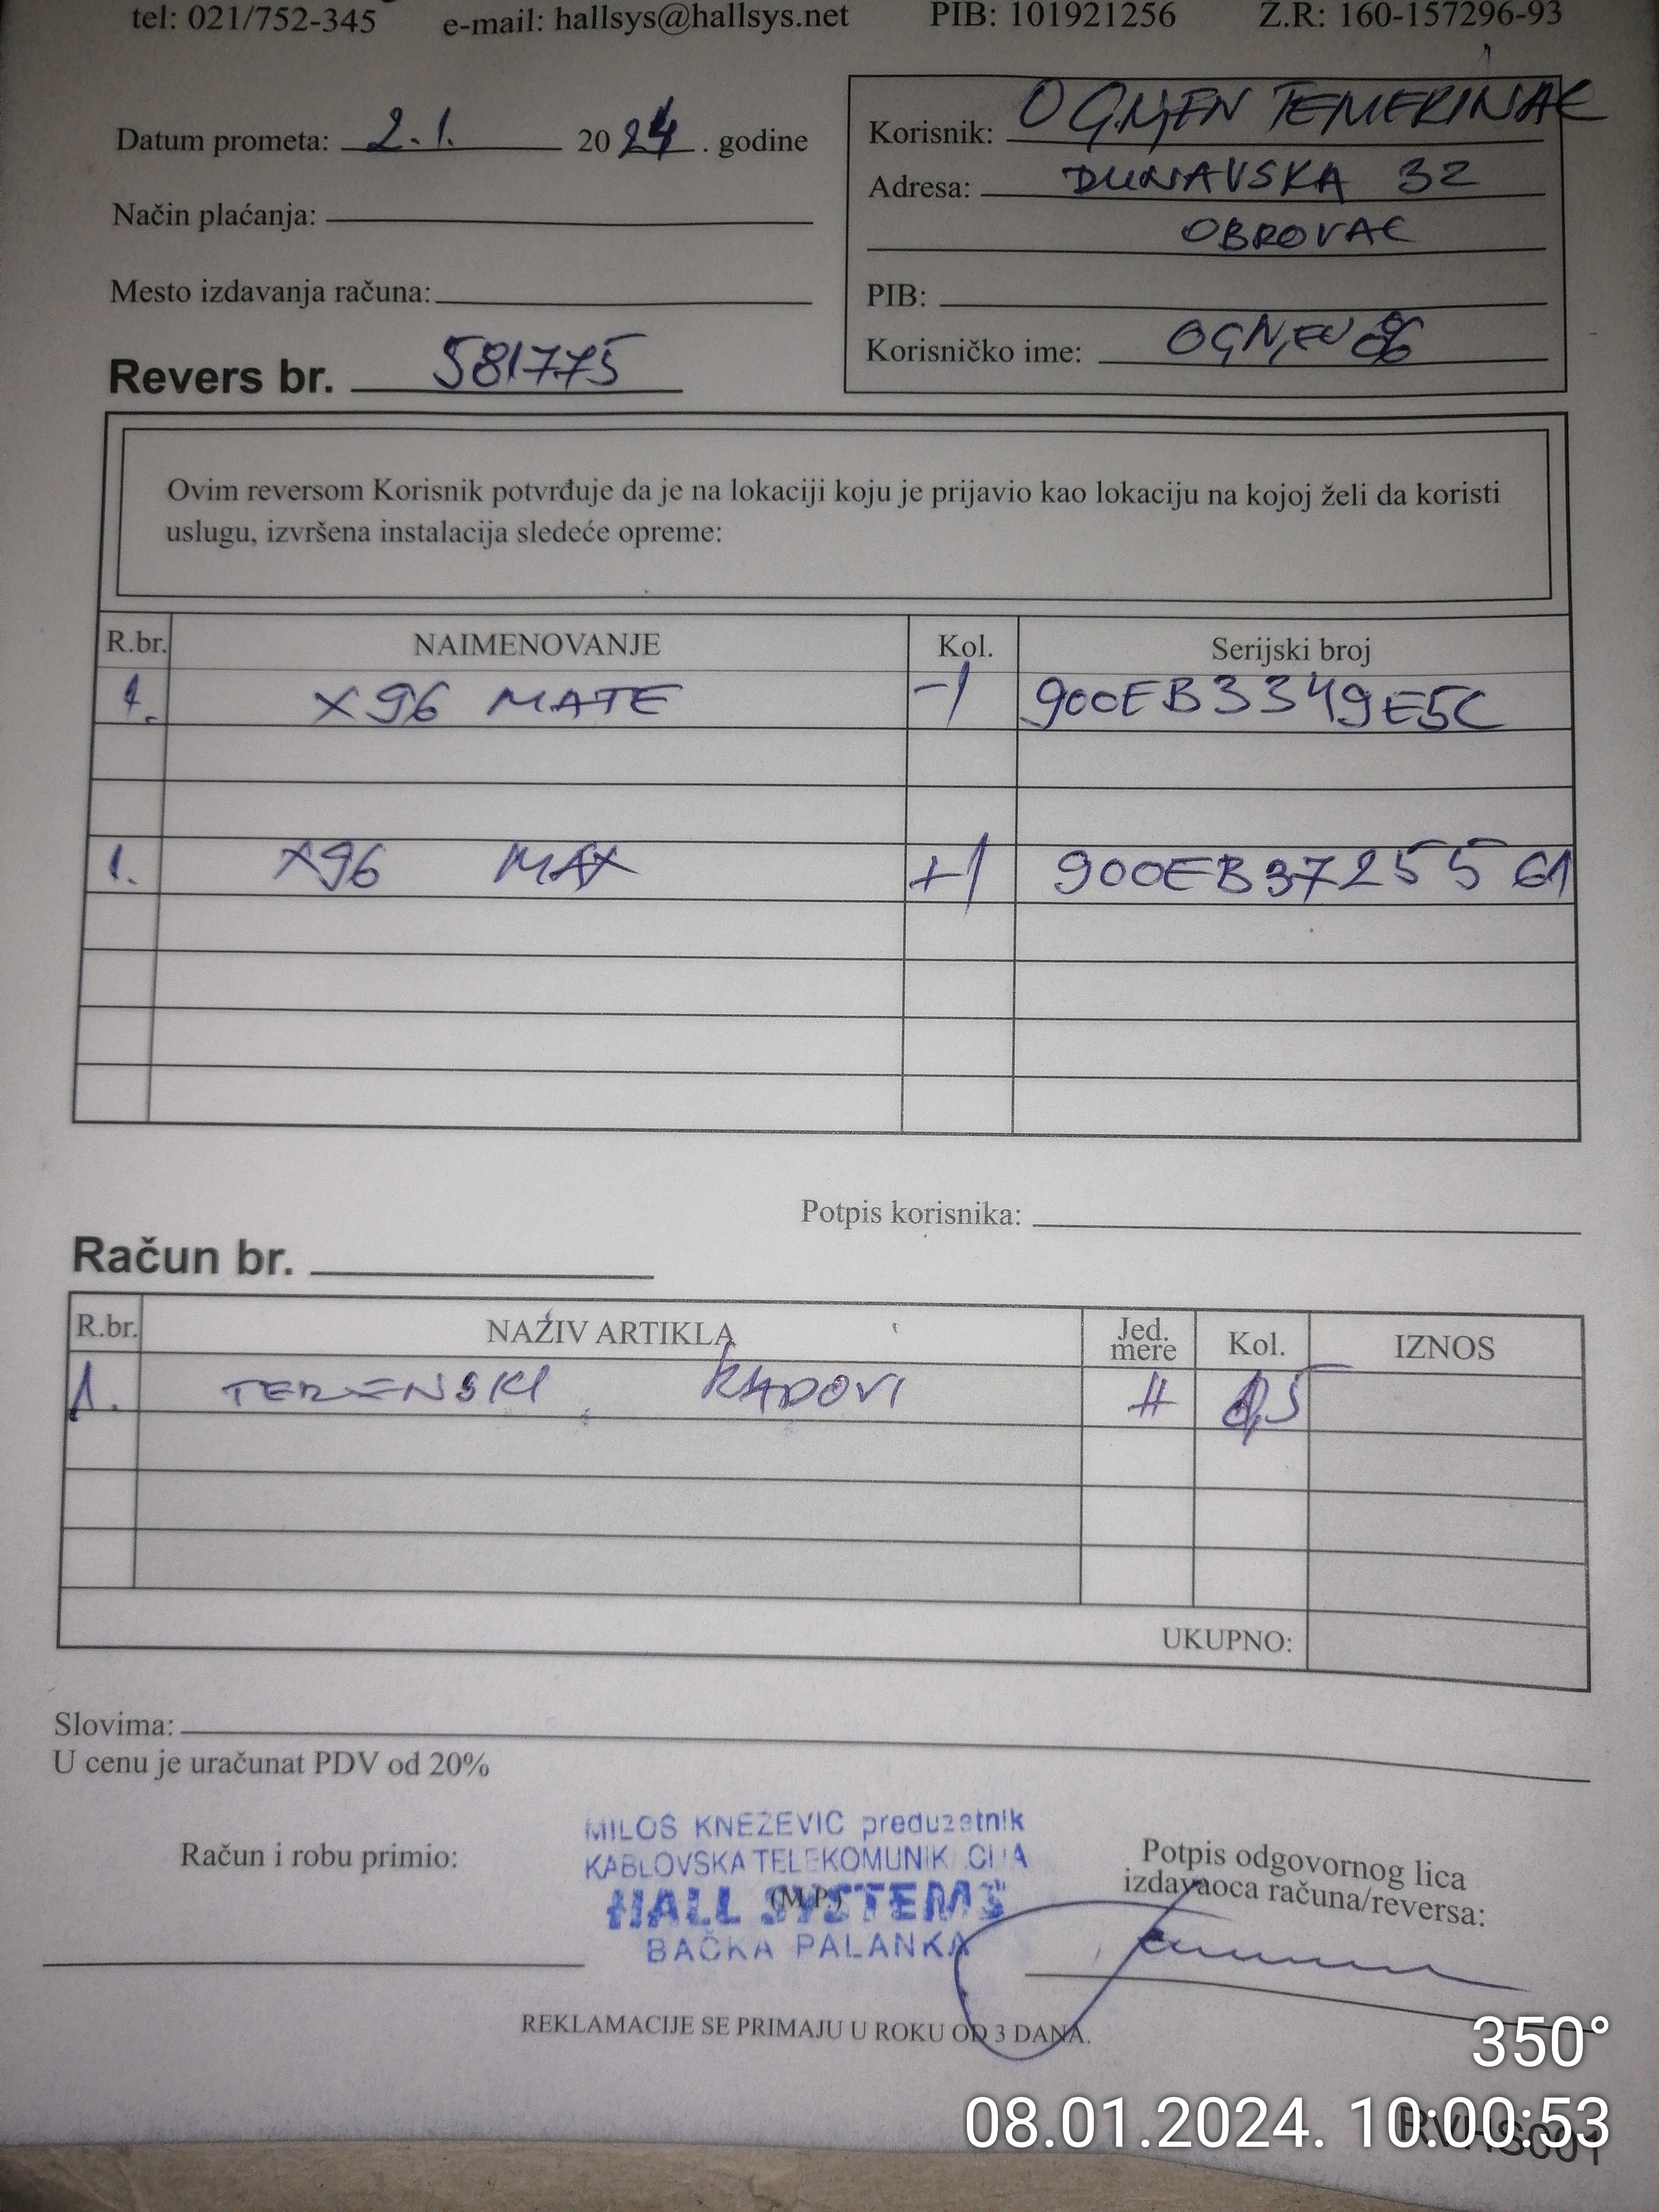 tel: 021/752-345 e-mail: hallsys@hallsys.net PIB: 101921256 Ž.R: 160-157296-93
Datum prometa: 2.1. 2024. godine
Način plaćanja:
Mesto izdavanja računa:
Revers br. 581775
Korisnik: OGNJEN TEMERINAC
Adresa: DUNAVSKA 32
OBROVAC
PIB:
Korisničko ime: OGNJEN86
Ovim reversom Korisnik potvrđuje da je na lokaciji koju je prijavio kao lokaciju na kojoj želi da koristi
uslugu, izvršena instalacija sledeće opreme:
R.br. NAIMENOVANJE Kol. Serijski broj
1. X96 MATE -1 900EB3349E5C
1. X96 MAX +1 900EB3725561
Potpis korisnika:
Račun br.
R.br. NAZIV ARTIKLA Jed. mere Kol. IZNOS
1. TERENSKI RADOVI H 0,5
UKUPNO:
Slovima:
U cenu je uračunat PDV od 20%
Račun i robu primio:
MILOŠ KNEŽEVIĆ preduzetnik
KABLOVSKA TELEKOMUNIKACIJA
HALL SYSTEMS
(M.P.)
BAČKA PALANKA
Potpis odgovornog lica
izdavaoca računa/reversa:
REKLAMACIJE SE PRIMAJU U ROKU OD 3 DANA.
350°
08.01.2024. 10:00:53
RVHS001